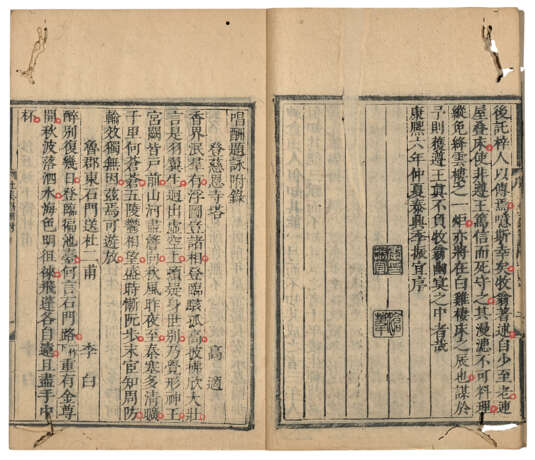 後託梓人以傳焉噫斯幸矣牧翁著述自少至老連
屋疊床使非遵王篤信而死守之其漫漶不可料理
縱免絳雲樓之一炬亦將在白雞棲床之辰也謀於
予則獲遵王真不負牧翁幽冥之中者哉
康熙六年仲夏泰興季振宜序
唱酬題詠附錄
登慈恩寺塔
高適
香界泯羣有浮圖豈諸相登臨駭孤高披拂欣大壯
言是羽翼生迥出虛空上頓疑身世別乃覺形神王
宮闕皆戶前山河盡簷向秋風昨夜至秦塞多清曠
千里何蒼蒼五陵鬱相望盛時慚阮步末宦知周防
輸效獨無因茲焉可遊放
魯郡東石門送杜二甫
李白
醉別復幾日登臨徧池臺何言石門路重有金尊
開秋波落泗水海色明徂徠飛蓬各自遠且盡手中
杯